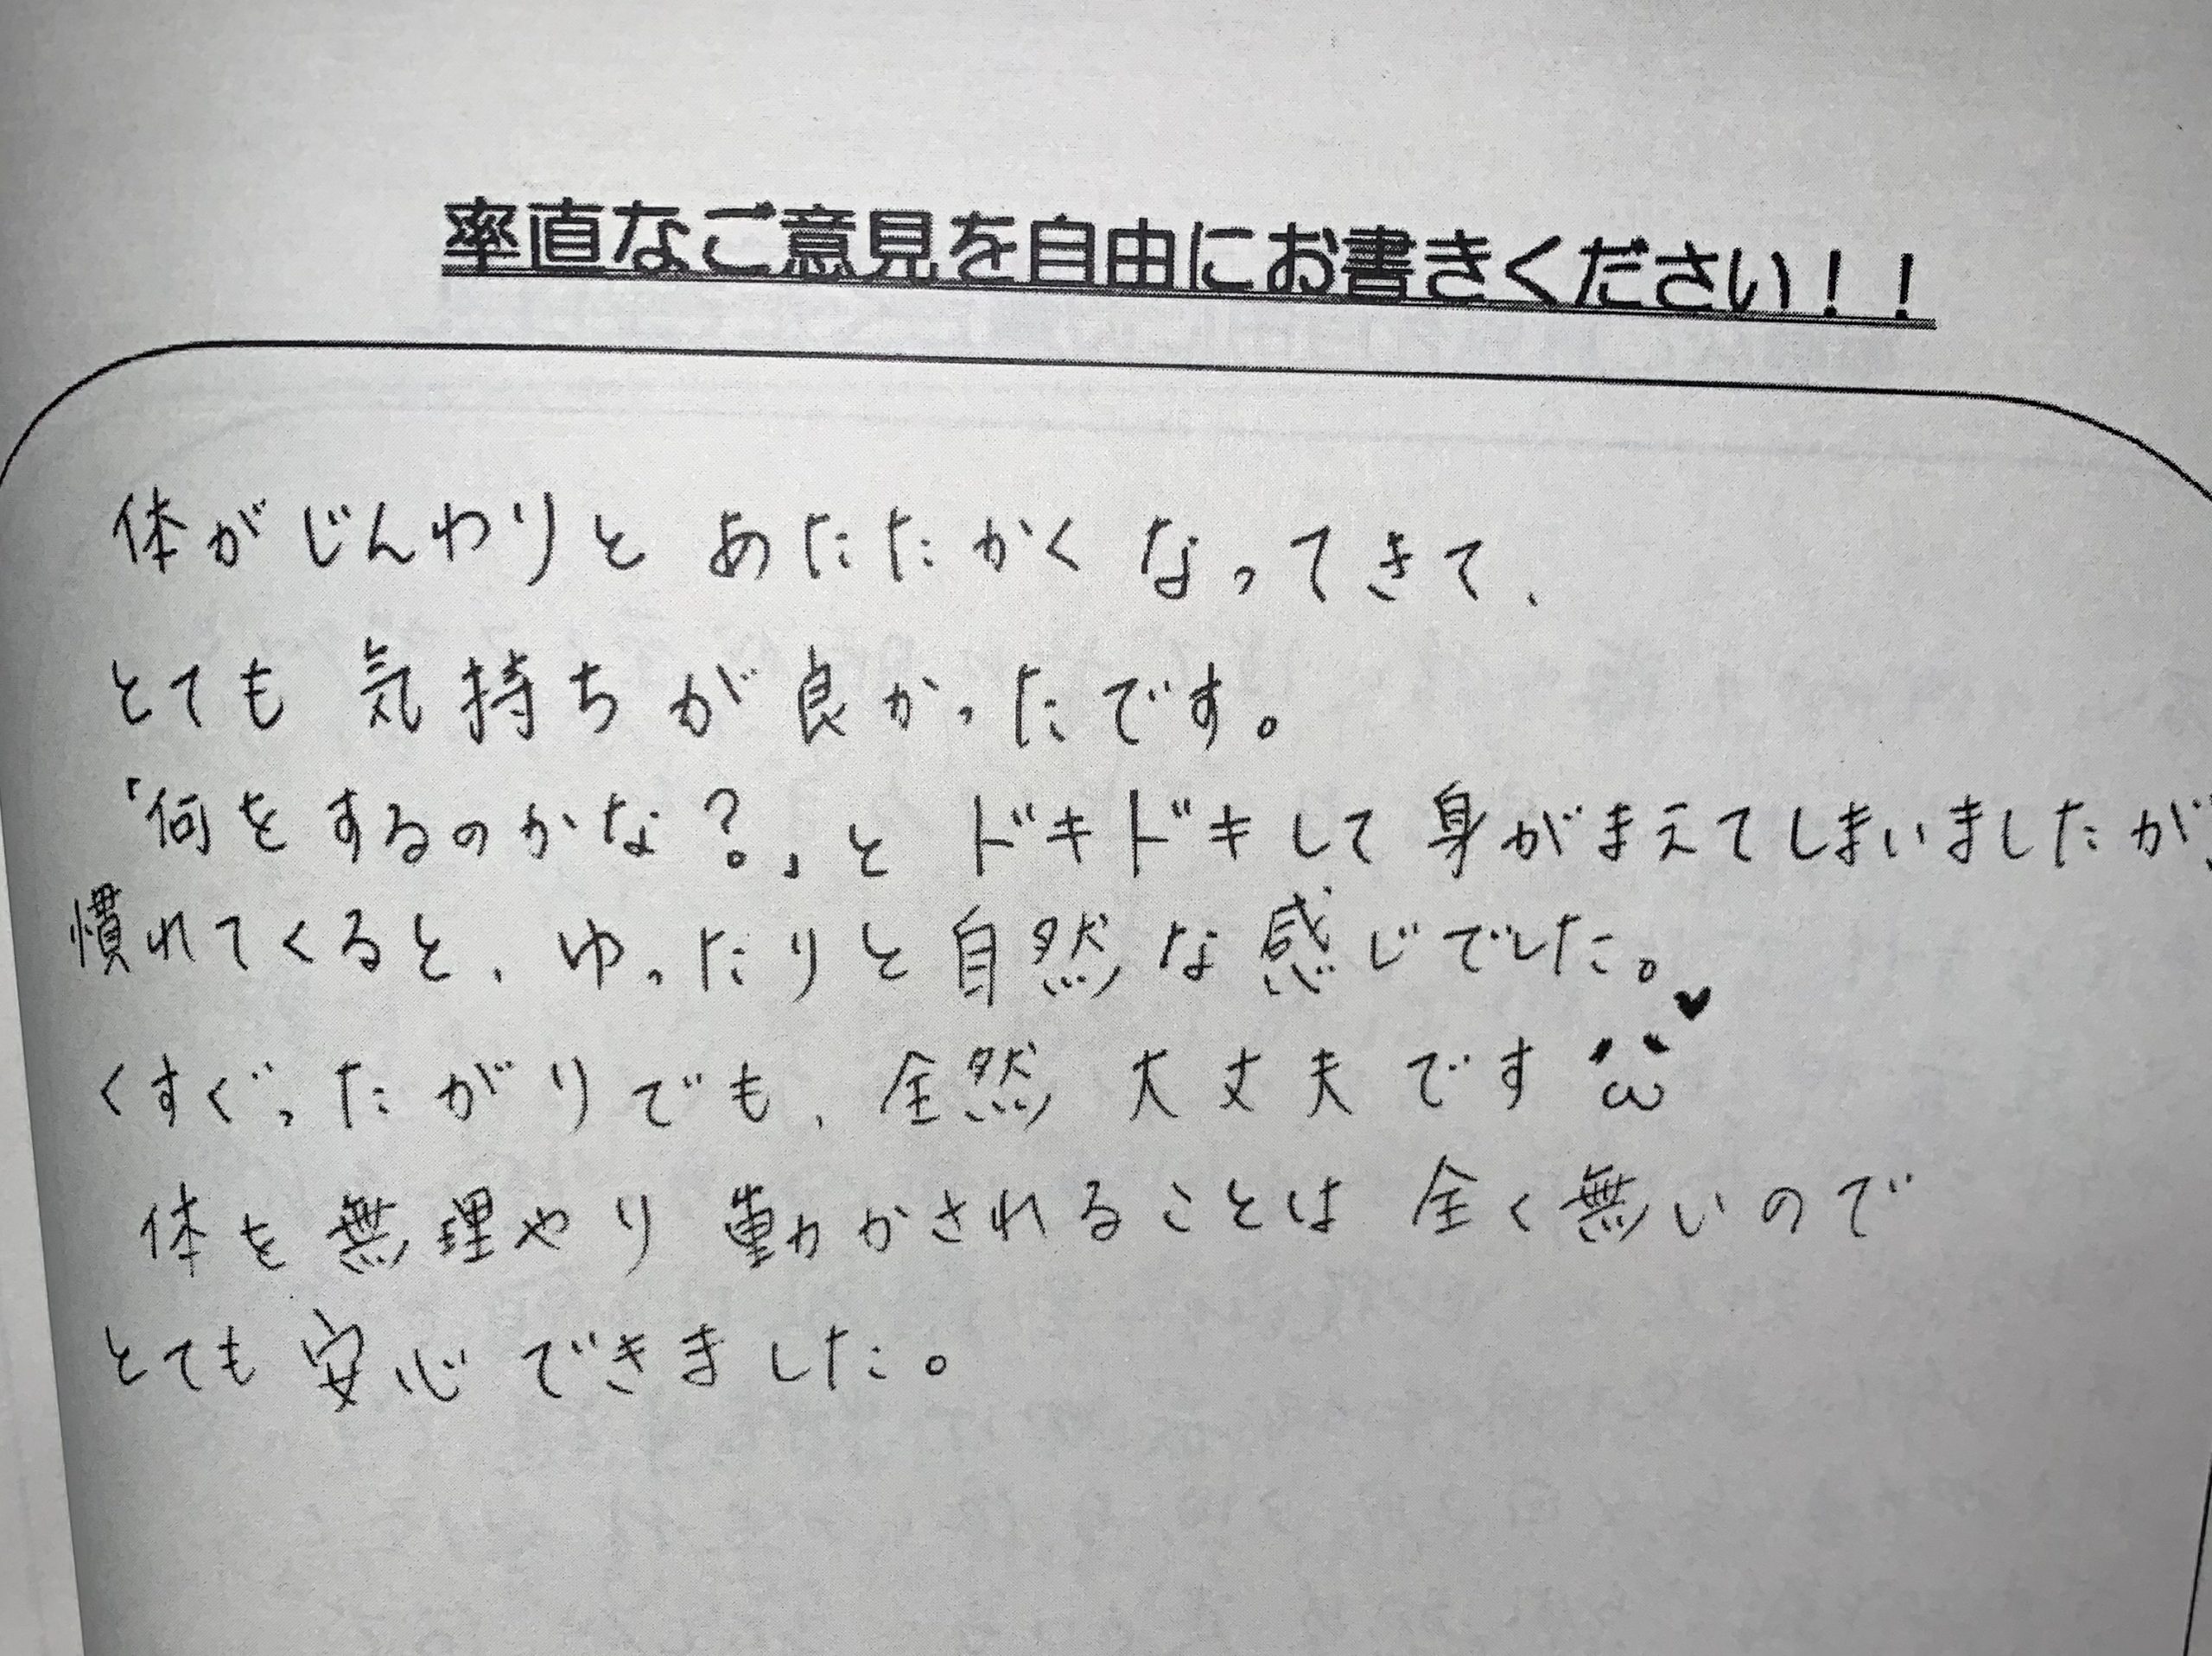 率直なご意見を自由にお書きください！！
体がじんわりと あたたかく なってきて、
とても 気持ちが良かったです。
「何をするのかな？」と ドキドキして 身がまえてしまいましたが、
慣れてくると、ゆったりと自然な感じでした。
くすぐったがりでも、全然 大丈夫です ω♥
体を無理やり 動かされることは 全く無いので
とても 安心できました。